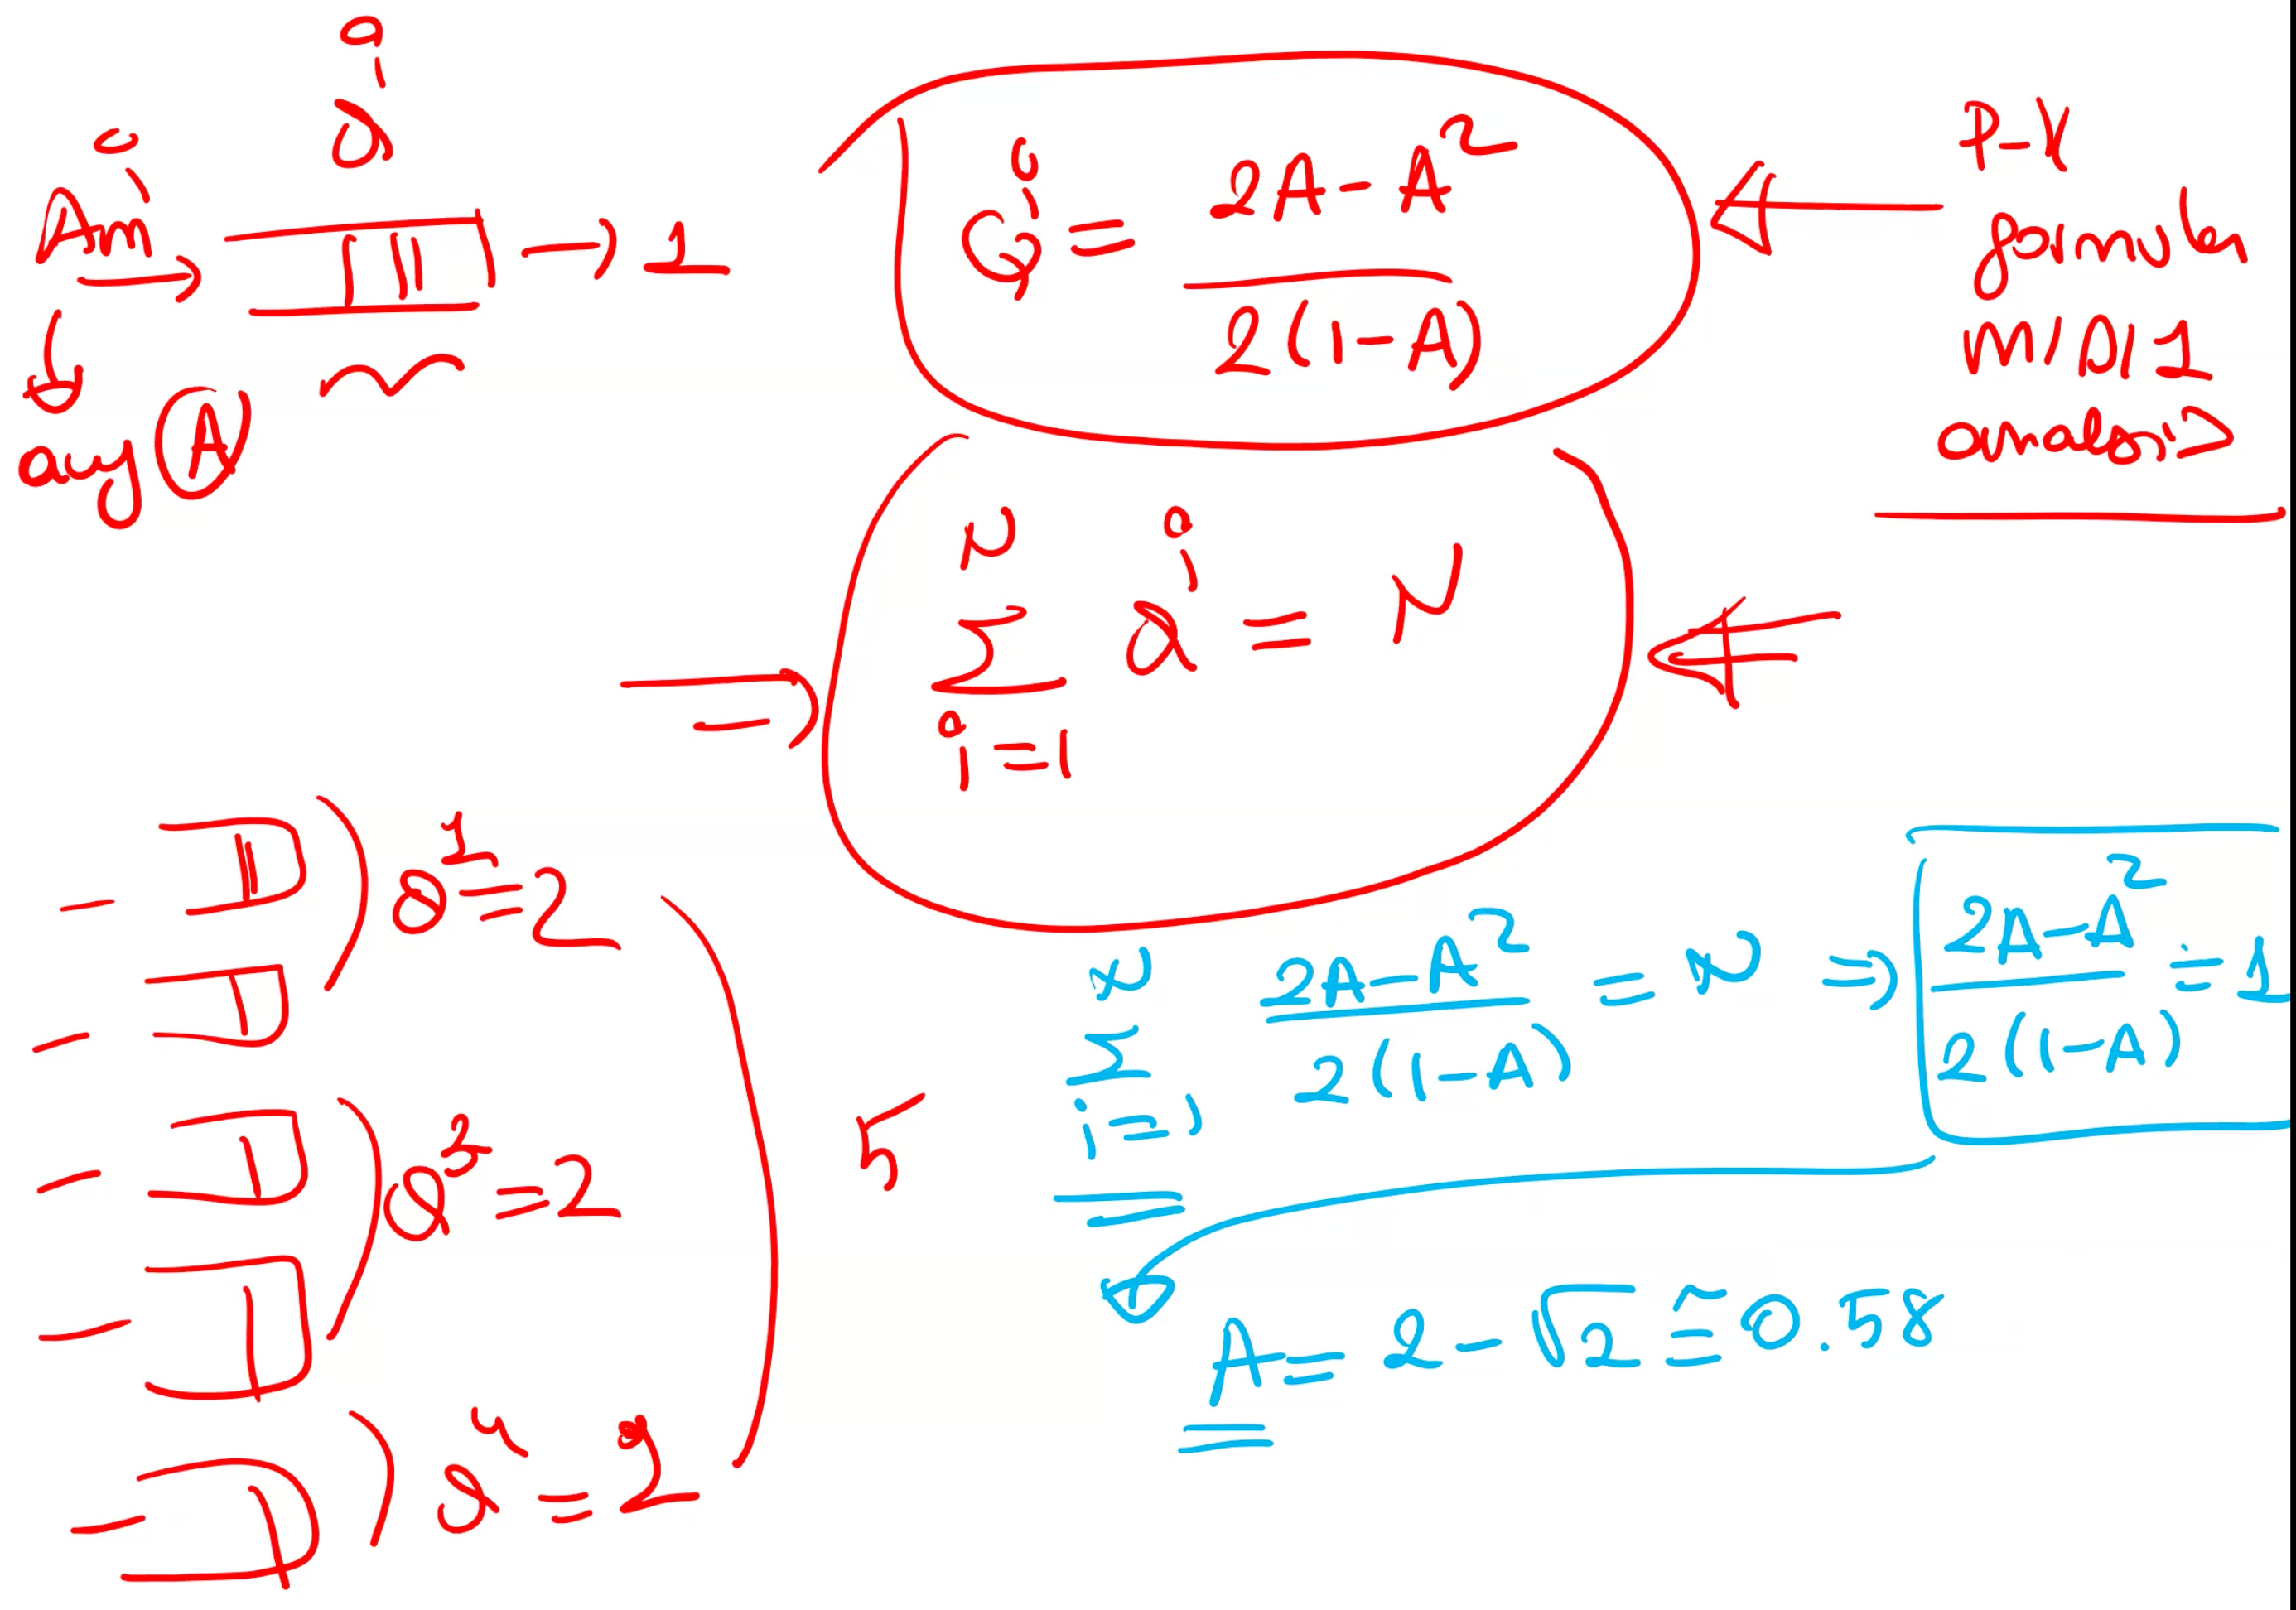 A_m^i → Q^i → 1
avg A
Q^i = (2A - A^2) / (2(1-A))
P-K
formula
M/D/1
analysis
\sum_{i=1}^{N} Q^i = N
Q^1 = 2
Q^3 = 2
Q^4 = 2
5
\sum_{i=1}^{N} (2A - A^2) / (2(1-A)) = N ⇒ (2A - A^2) / (2(1-A)) = 1
A = 2 - √2 ≅ 0.58